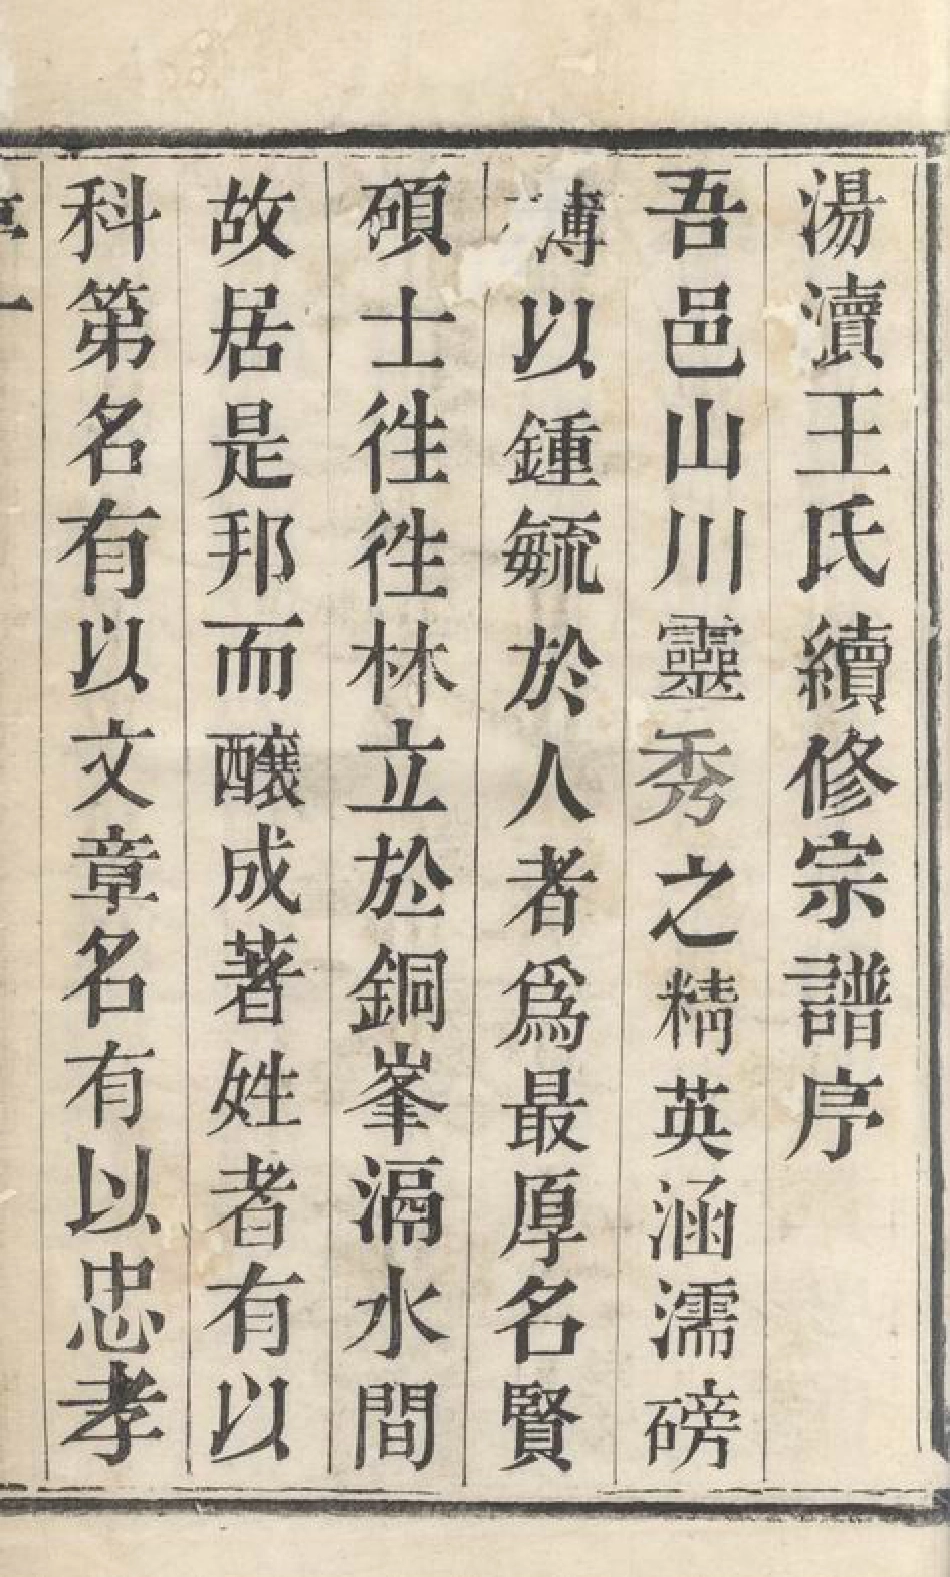 湯瀆王氏續修宗譜序
吾邑山川靈秀之精英涵濡磅
礴以鍾毓於人者爲最厚名賢
碩士徃徃林立於銅峯滆水間
故居是邦而釀成著姓者有以
科第名有以文章名有以忠孝